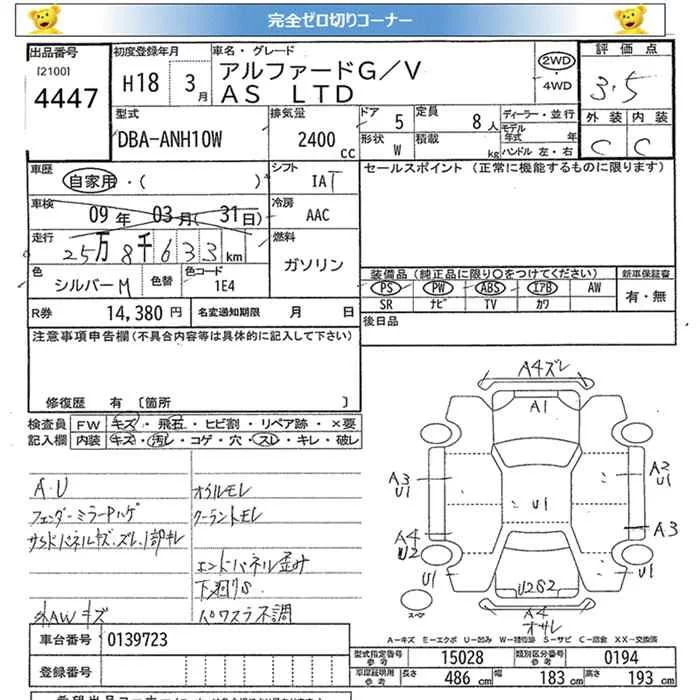 完全ゼロ切りコーナー
出品番号
[2100]
4447
初度登録年月
H18 3月
車名・グレード
アルファードG/V
AS LTD
2WD
・
4WD
評価点
3.5
外装 内装
C C
型式
DBA-ANH10W
排気量
2400 cc
ドア 5
形状 W
定員 8人
積載 kg
ディーラー・並行
モデル年式 年
ハンドル 左・右
車歴
自家用・( )
シフト
IAT
車検
09年 03月( 31日)
冷房
AAC
走行
25万8千633km
燃料
ガソリン
色
シルバーM
色替
色コード
1E4
R券 14,380円
名変通知期限 月 日
セールスポイント (正常に機能するものに限ります)
装備品(純正品に限り○をつけてください)
PS PW ABS エアB AW
SR ナビ TV カワ
新車保証書
有・無
後日品
注意事項申告欄(不具合内容等は具体的に記入して下さい)
修復歴 有〔箇所 〕
検査員記入欄
FW キズ・飛石・ヒビ割・リペア跡・×要
内装 キズ・汚レ・コゲ・穴・スレ・キレ・破レ
A.U
フェンダーミラーPハゲ
オイルモレ
クーラントモレ
エンドパネル歪み
下廻りS
パワステ不調
外AWキズ
A4ズレ
A1
A3
U1
A2
U1
U1
A4
U2
A3
U1
U1
U2S2
A4
スペア
A-キズ E-エクボ U-凹み W-補修跡 S-サビ C-腐食 XX-交換済
車台番号 0139723
登録番号
型式指定番号
参考
15028
類別区分番号
参考
0194
車庫証明用
参考
長さ 486cm 幅 183cm 高さ 193cm